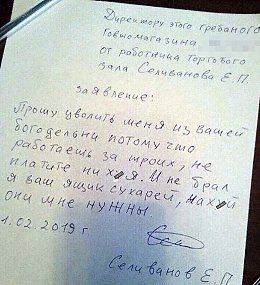 Директору этого гребаного
Говномагазина
от работника торгового
зала Селиванова Е.П.
заявление:
Прошу уволить меня из вашей
богодельни потому что
работаешь за троих, не
платите них*я. И не брал
я ваш ящик сухарей, нах*й
они мне нужны
1.02.2019 г
Селиванов Е.П